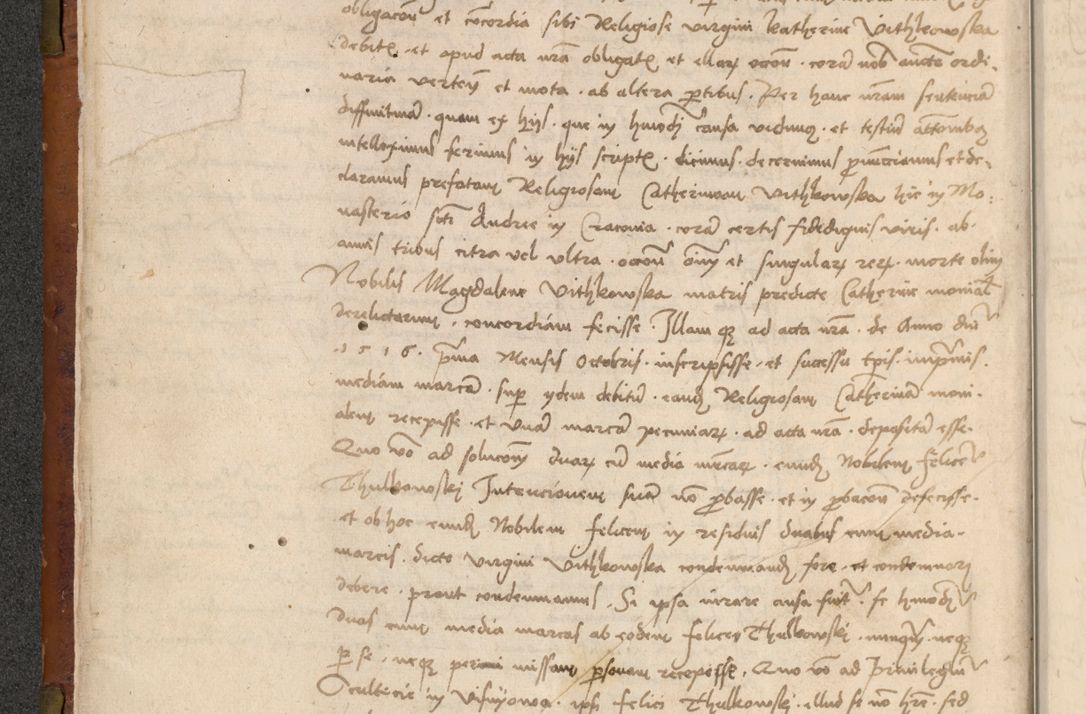 obligacioni et concordia sibi Religiose virgini Katherine Vithkowska
debite et apud acta nrã obligate et ellar occõn corã nob auctẽ ordi,
naria verteñ et mota ab altera ptibus. Per hanc nram sentenciã
diffinitiuã quam ex hijs que in hmodi causa vidimus et testiũ
intelleximus ferimus in hijs scriptẽ dicimus decernimus pnuncciamus et de,
claramus prefatam Religiosam Catherinam Vithkowska hic in Mo,
nasterio scti Andree in Cracouia corã certis fidedignis viris ab
annis tribus citra vel vltra occõn õiuz et singular rerz morte olim
Nobilis Magdalene Vithkowska matris predicte Catherine monial
derelictarum concordiam fecisse. Illam qz ad acta nrã de Anno dni
1516 prima Mensis Octobris inscripsisse et successu tpis imprimis
mediam marcã sup ydem debitũ eandẽ Religiosam Catherinã moni,
alem recepisse et vnã marcã pecuniarz ad acta nrã depositã esse.
Quo vo ad solucõm duarz cũ media mrcarz eundẽ Nobilem felicẽ
Thulkowskj Intencionem suã nõ pbasse et in pbacõne defecisse.
et ob hoc eundẽ Nobilem felicem in residuis duabus cum media
marcis dicte virgini Vithkowska condemnandũ fore et condemnari
debere prout condemnamus. Si ipsa iurare ausa fuit se hmodi
duas cum media marcas ab eodem felice Thulkowskj nunquã neqz
p se neqz per missam psonam recepisse. Quo vo ad Priuilegiũ
Scultecie in Visnyowa ipsi felici Thulkowskj illud se nõ hre sed